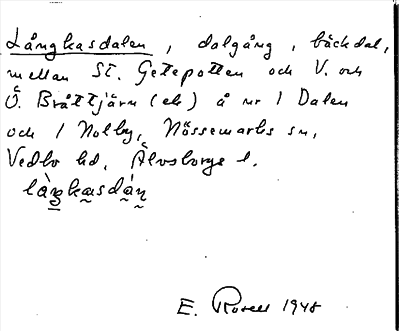 Långkasdalen, dalgång, bäckdal,
mellan St. Getepotten och V. och
Ö. Bråttjärn (ek) å nr 1 Dalen
och 1 Nolby, Nössemarks sn,
Vedbo hd, Älvsborgs l.
làŋkasdán
E. 1948